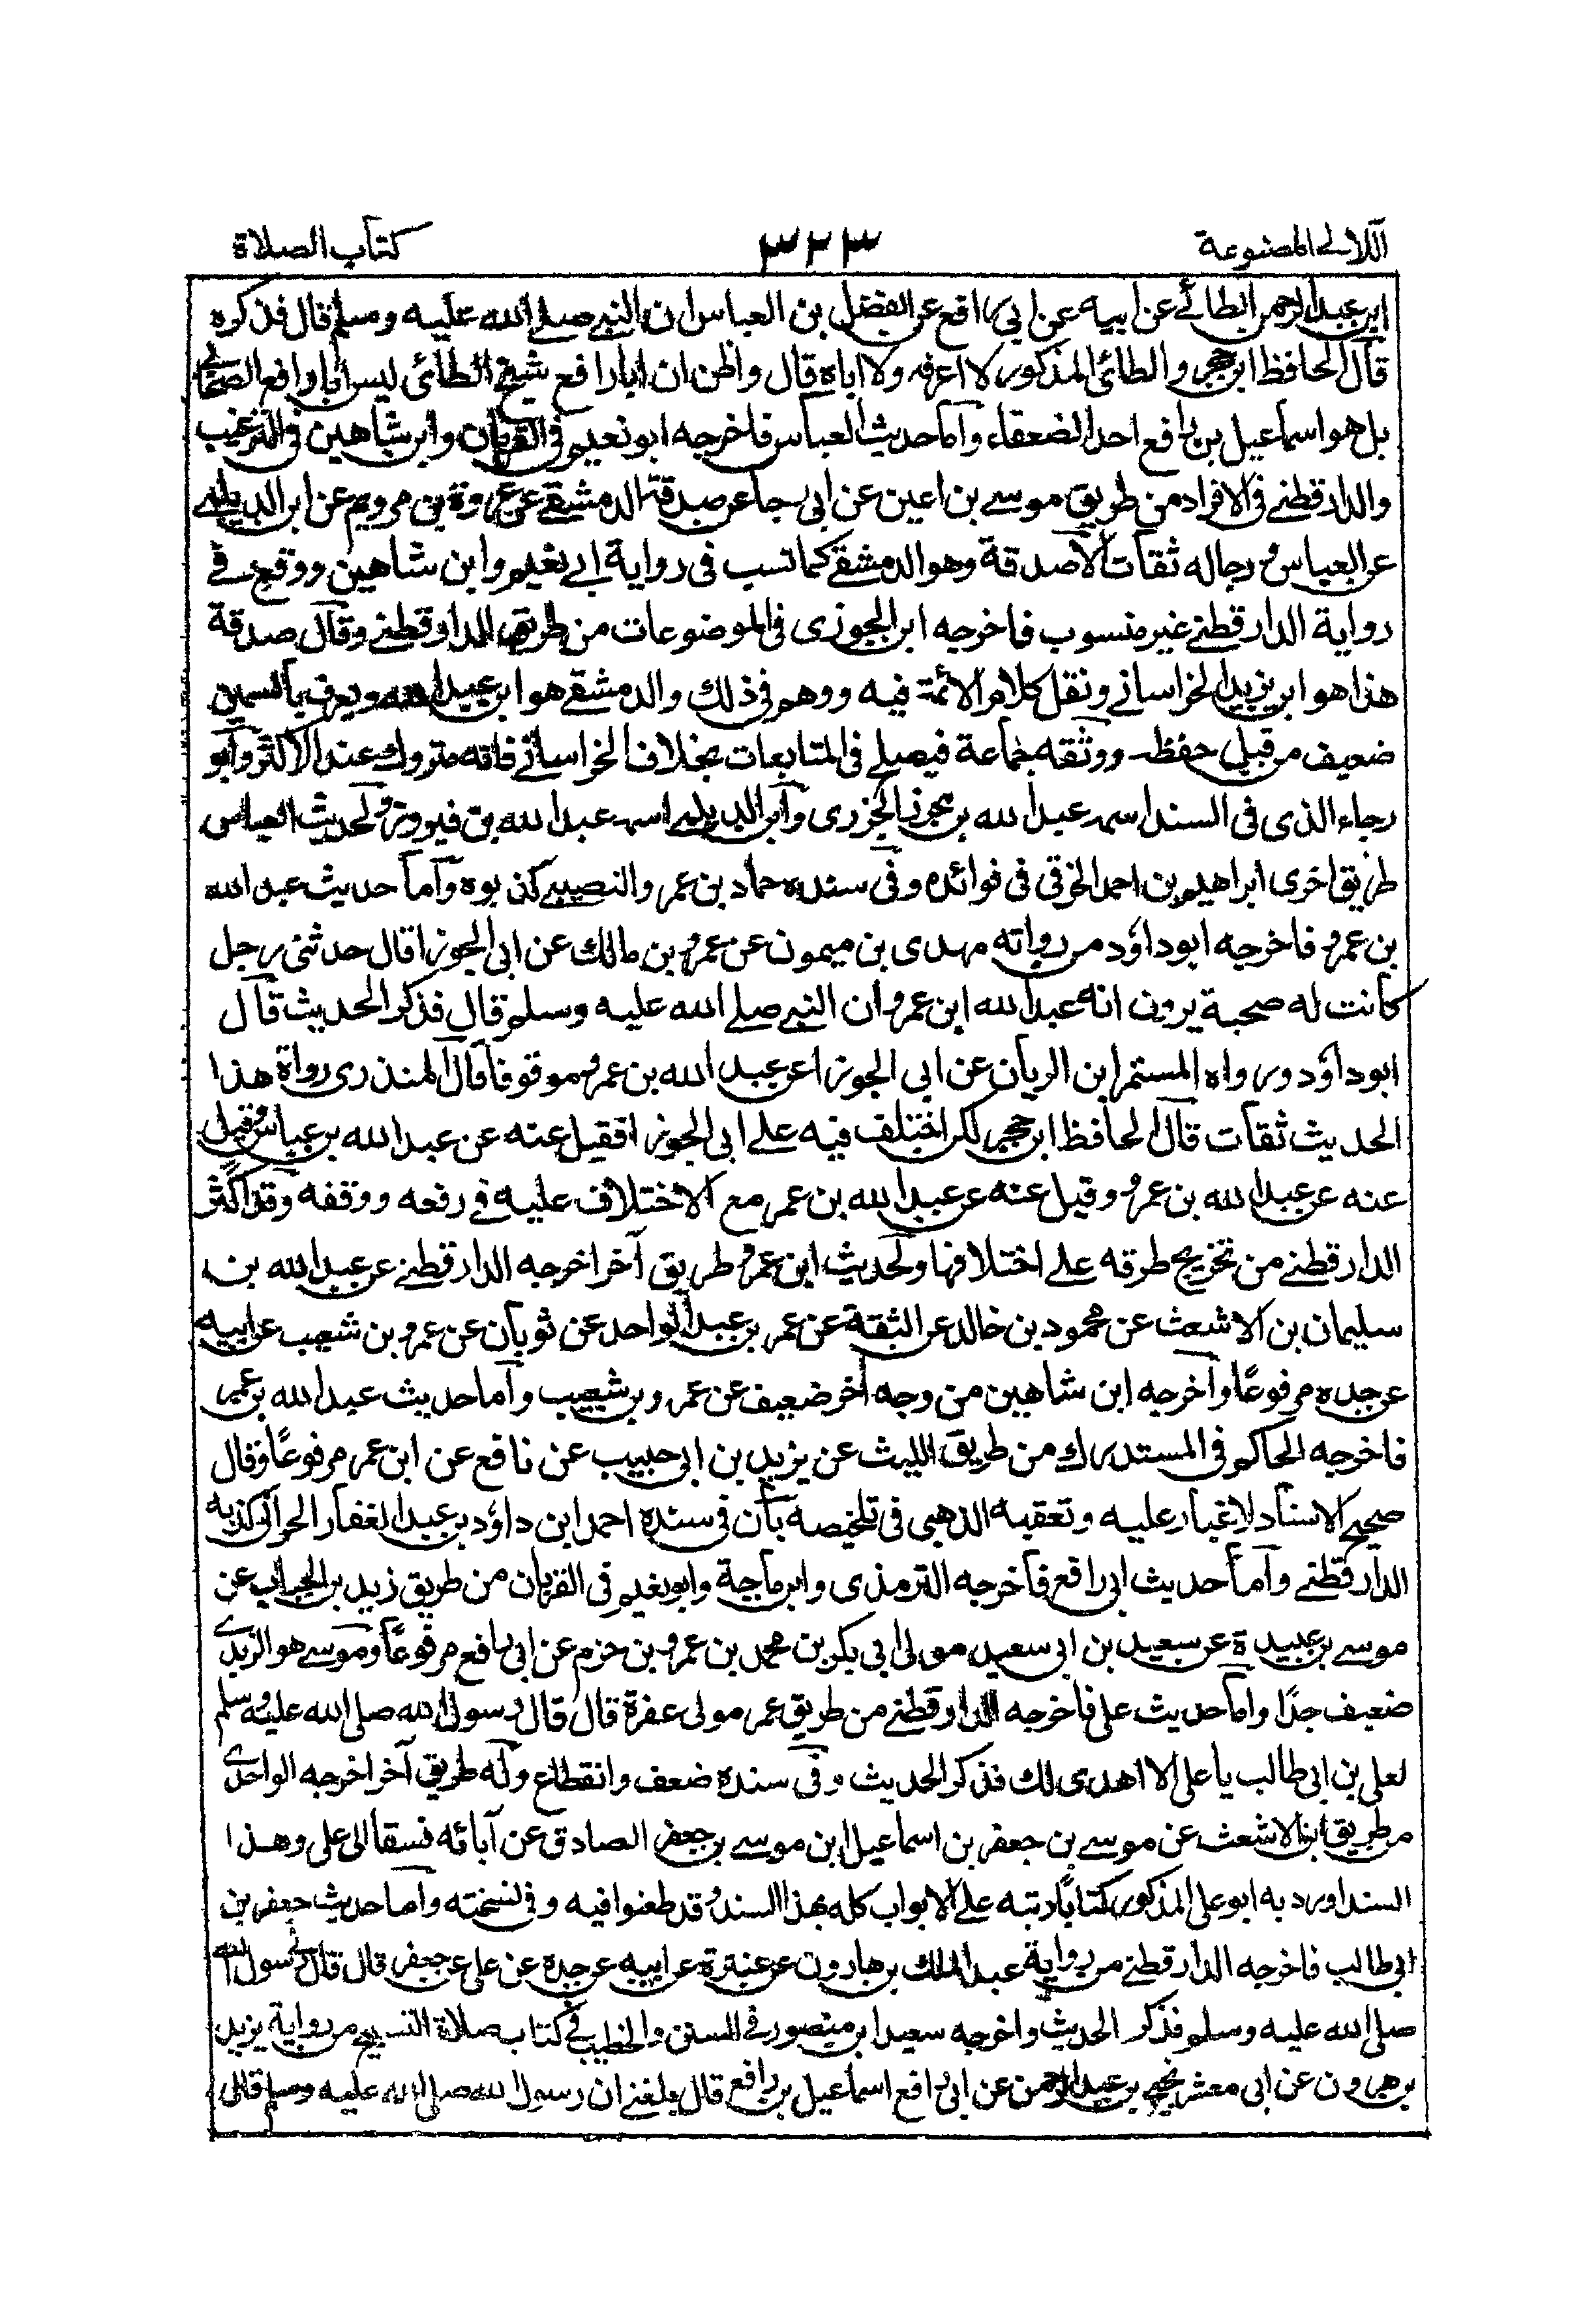 اللآلى المصنوعة ٣٢٣ كتاب الصلاة
ابن عبدالرحمن الطائي عن ابيه عن ابي رافع عن الفضل بن العباس ان النبي صلى الله عليه وسلم قال فذكره
قال الحافظ ابن حجر والطائى المذكور لا اعرفه ولا اباه قال واظن ان ابارافع شيخ الطائى ليس ابا رافع الصحابي
بل هو اسماعيل بن رافع احد الضعفاء واما حديث العباس فاخرجه ابو نعيم فى القربان وابن شاهين فى الترغيب
والدارقطنى فى الافراد من طريق موسى بن اعين عن ابى رجا عن صدقة الدمشقى عن عروة بن رويم عن ابن الديلمى
عن العباس ورجاله ثقات الا صدقة وهو الدمشقى كما نسب فى رواية ابى نعيم وابن شاهين ووقع فى
رواية الدارقطنى غير منسوب فاخرجه ابن الجوزى فى الموضوعات من طريق الدارقطنى وقال صدقة
هذا هو ابن يزيد الخراسانى ونقل كلام الائمة فيه ووهم فى ذلك والدمشقى هو ابن عبيد الله ويعرف بالسمين
ضعيف من قبل حفظه ووثقه جماعة فيصلح فى المتابعات بخلاف الخراسانى فانه متروك عند الاكثر وابو
رجاء الذى فى السند اسمه عبد الله بن محرز الجزرى وابن الديلمى اسمه عبد الله بن فيروز ولحديث العباس
طريق اخرى ابراهيم بن احمد الخرقى فى فوائده وفى سنده حماد بن عمرو النصيبى كذبوه واما حديث عبد الله
بن عمرو فاخرجه ابو داؤد من رواته مهدى بن ميمون عن عمرو بن مالك عن ابى الجوزا قال حدثنى رجل
كانت له صحبة يرون انه عبد الله ابن عمرو ان النبى صلى الله عليه وسلم قال فذكر الحديث قال
ابو داؤد ورواه المستمر ابن الريان عن ابى الجوزا عن عبد الله بن عمرو موقوفا قال المنذرى رواة هذا
الحديث ثقات قال الحافظ ابن حجر لكن اختلف فيه على ابى الجوزا فقيل عنه عن عبد الله بن عباس وقيل
عنه عن عبد الله بن عمرو وقيل عنه عن عبد الله بن عمر مع الاختلاف عليه فى رفعه ووقفه وقد اكثر
الدارقطنى من تخريج طرقه على اختلافها ولحديث ابن عمرو طريق آخر اخرجه الدارقطنى عن عبد الله بن
سليمان بن الاشعث عن محمود بن خالد عن الثقة عن عمر بن عبد الواحد عن ثوبان عن عمرو بن شعيب عن ابيه
عن جده مرفوعًا واخرجه ابن شاهين من وجه آخر ضعيف عن عمرو بن شعيب واما حديث عبد الله بن عمر
فاخرجه الحاكم فى المستدرك من طريق الليث عن يزيد بن ابى حبيب عن نافع عن ابن عمر مرفوعًا وقال
صحيح الاسناد لاغبار عليه وتعقبه الذهبى فى تلخيصه بأن فى سنده احمد ابن داؤد بن عبد الغفار الحرانى كذبه
الدارقطنى واما حديث ابى رافع فاخرجه الترمذى وابن ماجة وابو نعيم فى القربان من طريق زيد بن الحباب عن
موسى بن عبيدة عن سعيد بن ابى سعيد مولى ابى بكر بن محمد بن عمرو بن حزم عن ابى رافع مرفوعًا وموسى هو الزبدى
ضعيف جدًا واما حديث على فاخرجه الدارقطنى من طريق عمر مولى عفرة قال قال رسول الله صلى الله عليه وسلم
لعلى بن ابى طالب يا على الا اهدى لك فذكر الحديث وفى سنده ضعف وانقطاع وله طريق آخر اخرجه الواحدى
من طريق ابن الاشعث عن موسى بن جعفر بن اسماعيل ابن موسى بن جعفر الصادق عن آبائه نسقا الى على وهذا
السند اورد به ابو على المذكور كتابًا رتبه على الابواب كله بهذا السند وقد طعنوا فيه وفى نسخته واما حديث جعفر بن
ابى طالب فاخرجه الدارقطنى من رواية عبد الملك بن هارون عن عنترة عن ابيه عن جده عن على عن جعفر قال قال رسول الله
صلى الله عليه وسلم فذكر الحديث واخرجه سعيد ابن منصور فى السنن والخطيب فى كتاب صلاة التسبيح من رواية يزيد
بن هرون عن ابى معشر نجيح بن عبد الرحمن عن ابى رافع اسماعيل بن رافع قال بلغنى ان رسول الله صلى الله عليه وسلم قال